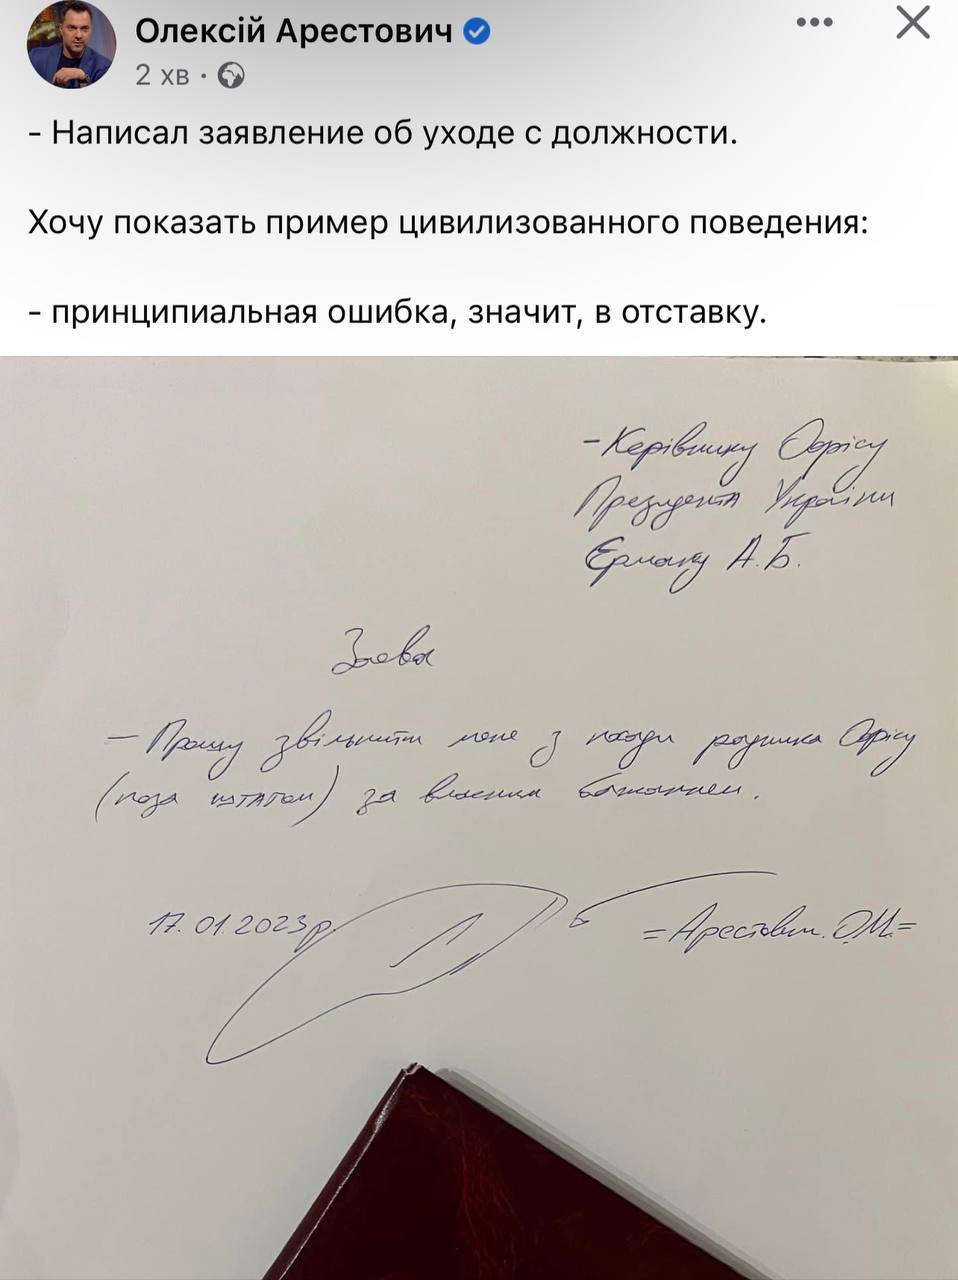 Олексій Арестович
2 хв ·
- Написал заявление об уходе с должности.
Хочу показать пример цивилизованного поведения:
- принципиальная ошибка, значит, в отставку.
- Керівнику Офісу
Президента України
Єрмаку А.Б.
Заява
- Прошу звільнити мене з посади радника Офісу
(поза штатом) за власним бажанням.
17.01.2023р.
=Арестович О.М.=